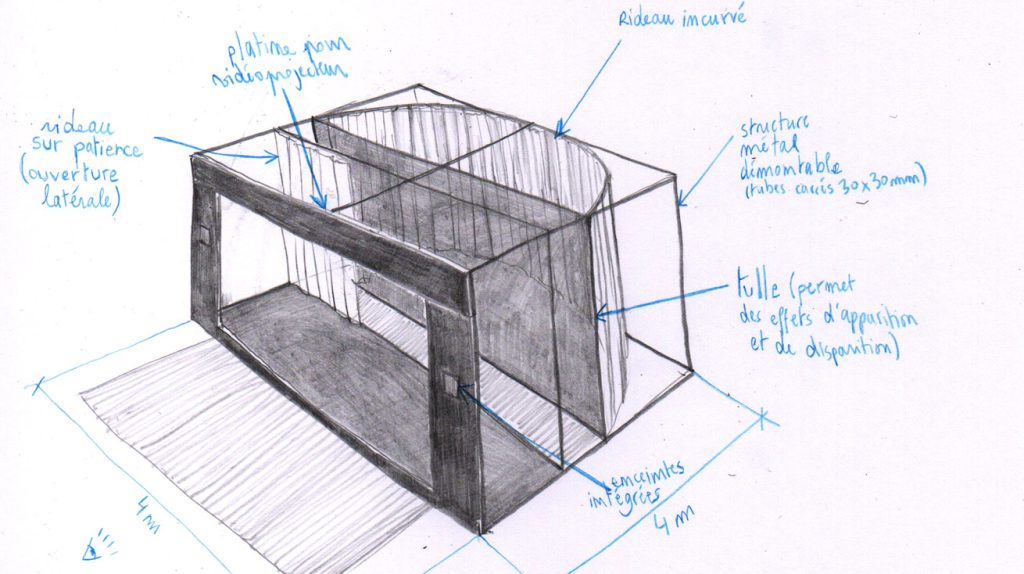 Rideau incurvé
platine pour
vidéoprojecteur
rideau
sur patience
(ouverture
latérale)
structure
métal
démontable
(tubes carrés 30x30mm)
tulle (permet
des effets d'apparition
et de disparition)
enceintes
intégrés
4 m
4 m